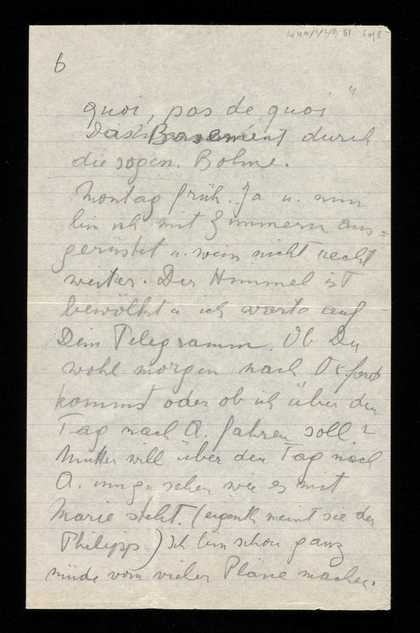 6
quoi, pas de quoi"
Das Basement durch
die sogen. Bohme.
Montag früh. Ja u. nun
bin ich mit Zimmern aus=
gerüstet u. weis nicht recht
weiter. Der Himmel ist
bewölkt u ich warte auf
Dein Telegramm. Ob Du
wohl morgen nach Oxford
kommst oder ob ich über den
Tag nach A. fahren soll?
Mutter will über den Tag nach
A. umzusehen wie es mit
Marie steht. (eigentl. meint sie den
Philipp.) Ich bin schon ganz
müde vom vielen Pläne machen.